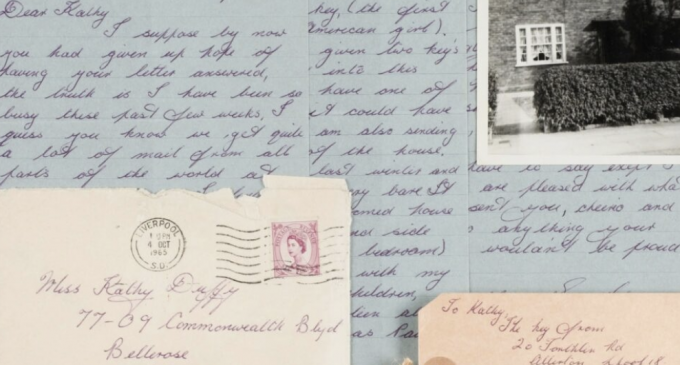 Dear Kathy
I suppose by now
you had given up hope of
having your letter answered,
the truth is I have been so
busy these past few weeks, I
guess you know we get quite
a lot of mail from all
parts of the world
key, (the first
American girl).
given two key's
into this
have one of
it could have
am also sending
of the house.
last winter and
bare. It
house
side
bedroom)
with my
children,
as
have to say except I
are pleased with what
sent you, cheerio and
anything your
wouldn't be proud
LIVERPOOL
4 OCT
1965
Miss Kathy Duffy
77-09 Commonwealth Blvd
Bellerose
To Kathy
The key from
20 Rd